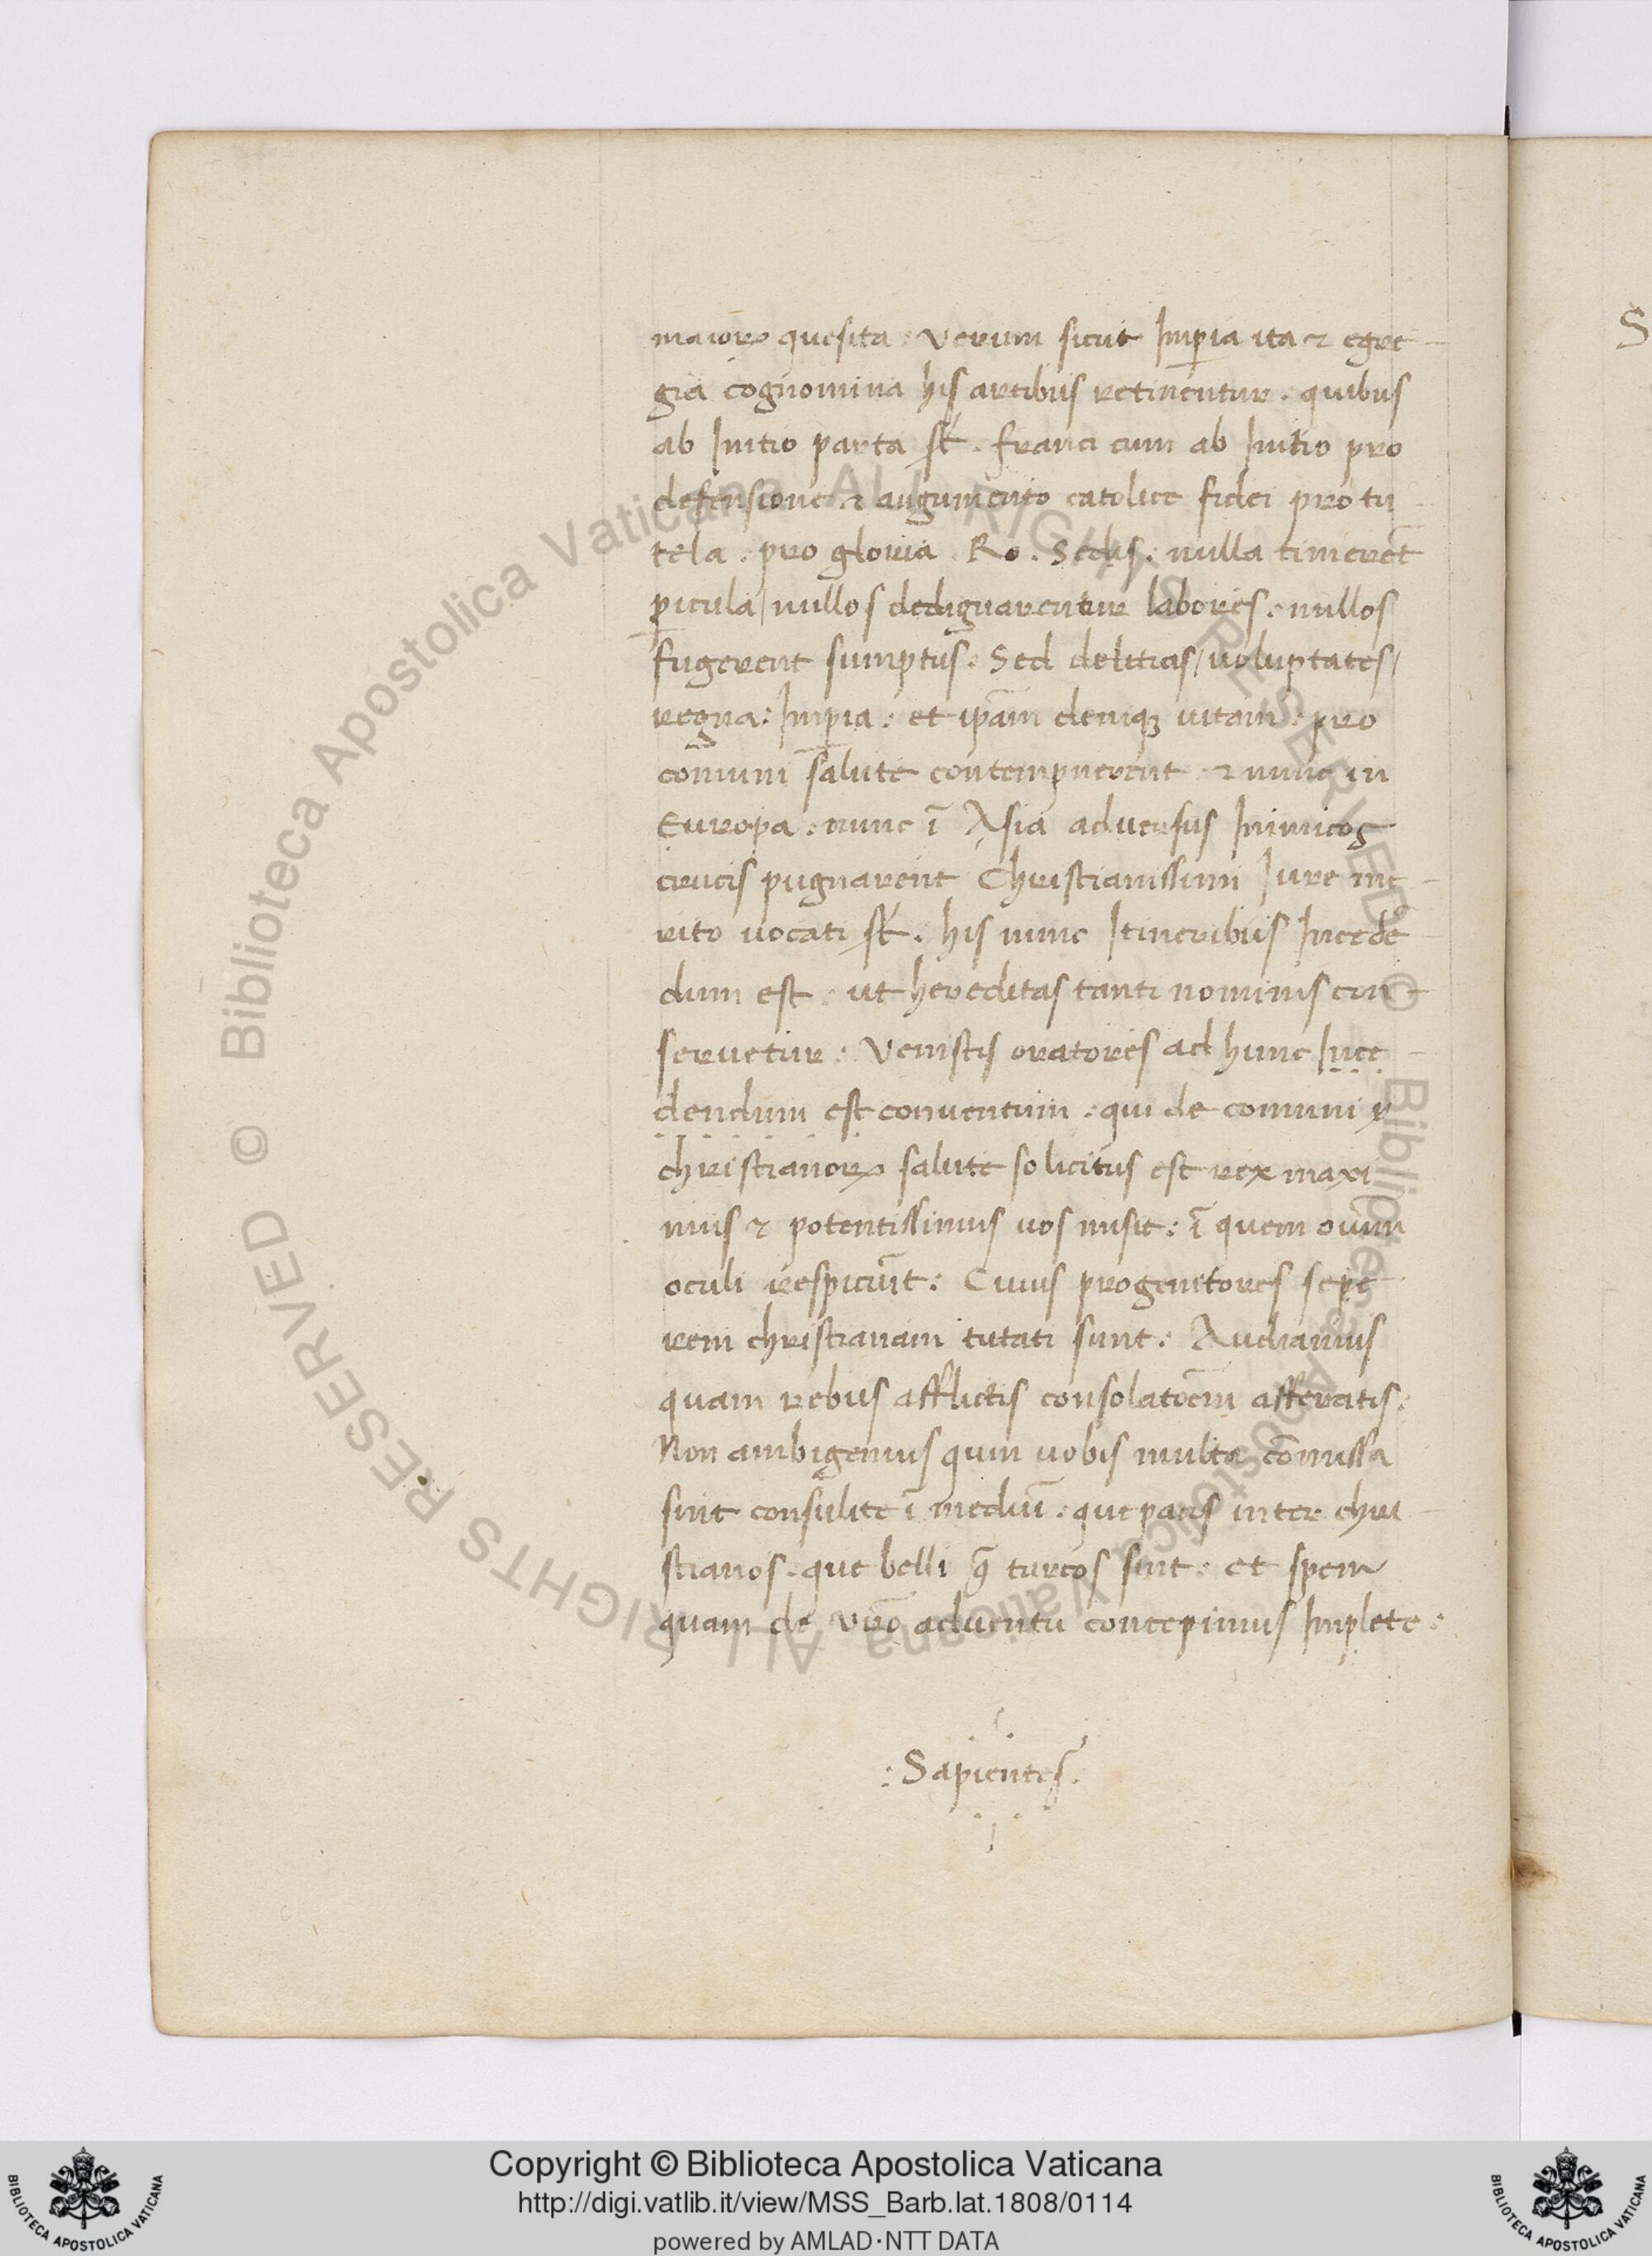 maioꝝ quesita : Verum sicut Imꝑia ita ⁊ egre-
gia cognomina his artibus retinentur . quibus
ab Initio parta st̅ . franci cum ab Initio pro
defensione ⁊ augumento catolice fidei pro tu
tela . pro gloria . Ro . Sedis . nulla timerēt
ꝑicula / nullos dedignarentur labores . nullos
fugerent sumptus . Sed delitias / uoluptates /
regna : Imꝑia : et ip̅am deniqꝫ uitam : pro
comuni salute contempnerent ⁊ nunc in
Europa . nunc ī Asia aduersus Inimicos
crucis pugnarent Christianissimi Iure me-
rito uocati st̅ . his nunc Itineribus Incedē
dum est : ut hereditas tanti nominis con-
seruetur : Venistis oratores ad hunc Ince-
dendum est conuentum . qui de comuni
christianoꝝ salute solicitus est rex maxi
mus ⁊ potentissimus uos misit : ī quem om̅iu
oculi respiciūt : Cuius progenitores sepe
rem christianam tutati sunt : Audiamus
quam rebus afflictis consolatōem afferatis :
Non ambigemus quin uobis multa cōmissa
sint consulite ī mediū . que pacis inter chri-
stianos . que belli turcos sint : et spem
quam de vr̅o aduentu concepimus Implete :
: Sapientes :
S
Biblioteca Apostolica Vaticana ALL RIGHTS RESERVED © Biblioteca Apostolica Vaticana ALL RIGHTS RESERVED ©
Copyright © Biblioteca Apostolica Vaticana
http://digi.vatlib.it/view/MSS_Barb.lat.1808/0114
powered by AMLAD·NTT DATA
BIBLIOTECA APOSTOLICA VATICANA
BIBLIOTECA APOSTOLICA VATICANA